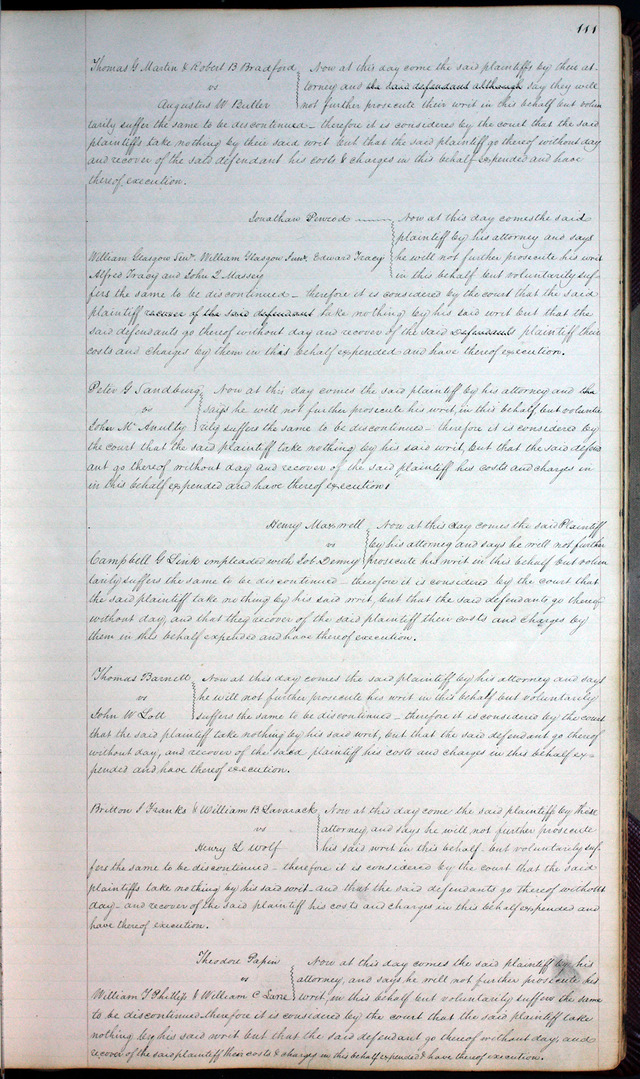 111
Thomas G Martin & Robert B Bradford Now at this day come the said plaintiffs by their at
vs torney and the said defendant although say they will
Augustus W Butler not further prosecute their writ in this behalf but volun
tarily suffer the same to be discontinued – therefore it is considered by the court that the said
plaintiffs take nothing by their said writ but that the said plaintiff go thereof without day
and recover of the said defendant his costs & charges in this behalf expended and have
thereof execution.
Jonathan Penrod Now at this day comes the said
plaintiff by his attorney and says
William Glasgow Senr. William Glasgow Junr. Edward Tracy he will not further prosecute his writ
Alfred Tracy and John Q Massey in this behalf but voluntarily suf-
fers the same to be discontinued – therefore it is considered by the court that the said
plaintiff recover of the said defendant take nothing by his said writ but that the
said defendants go thereof without day and recover of the said Defendants plaintiff their
costs and charges by them in this behalf expended and have thereof execution.
Peter G Sandburg Now at this day comes the said plaintiff by his attorney and the
vs says he will not further prosecute his writ, in this behalf but volunta
John Mc Anulty rily suffers the same to be discontinued – therefore it is considered by
the court that the said plaintiff take nothing by his said writ, but that the said defend
ant go thereof without day and recover of the said plaintiff his costs and charges in
in this behalf expended and have thereof execution.
Henry Maxwell Now at this day comes the said Plaintiff
vs by his attorney and says he will not further
Campbell G Link impleaded with Job Denny prosecute his writ in this behalf but volun
tarily suffers the same to be discontinued – therefore it is considered by the court that
the said plaintiff take nothing by his said writ, but that the said defendants go thereof
without day, and that they recover of the said plaintiff their costs and charges by
them in this behalf expended and have thereof execution.
Thomas Barnett Now at this day comes the said plaintiff by his attorney and says
vs he will not further prosecute his writ in this behalf but voluntarily
John W Lott suffers the same to be discontinued – therefore it is considered by the court
that the said plaintiff take nothing by his said writ, but that the said defendant go thereof
without day, and recover of the said plaintiff his costs and charges in this behalf ex-
pended and have thereof execution.
Britton I Franks & William B Lavarack Now at this day come the said plaintiffs by their
vs attorney, and says he will not further prosecute
Henry L Wolf his said writ in this behalf but voluntarily suf-
fers the same to be discontinued – therefore it is considered by the court that the said
plaintiffs take nothing by his said writ and that the said defendants go thereof without
day – and recover of the said plaintiff his costs and charges in this behalf expended and
have thereof execution.
Theodore Papin Now at this day comes the said plaintiff by his
vs attorney, and says he will not further prosecute his
William T Phillips & William C Lane writ, in this behalf but voluntarily suffers the same
to be discontinued. therefore it is considered by the court that the said plaintiff take
nothing by his said writ but that the said defendant go thereof without day, and
recover of the said plaintiff their costs & charges in this behalf expended & have thereof execution.